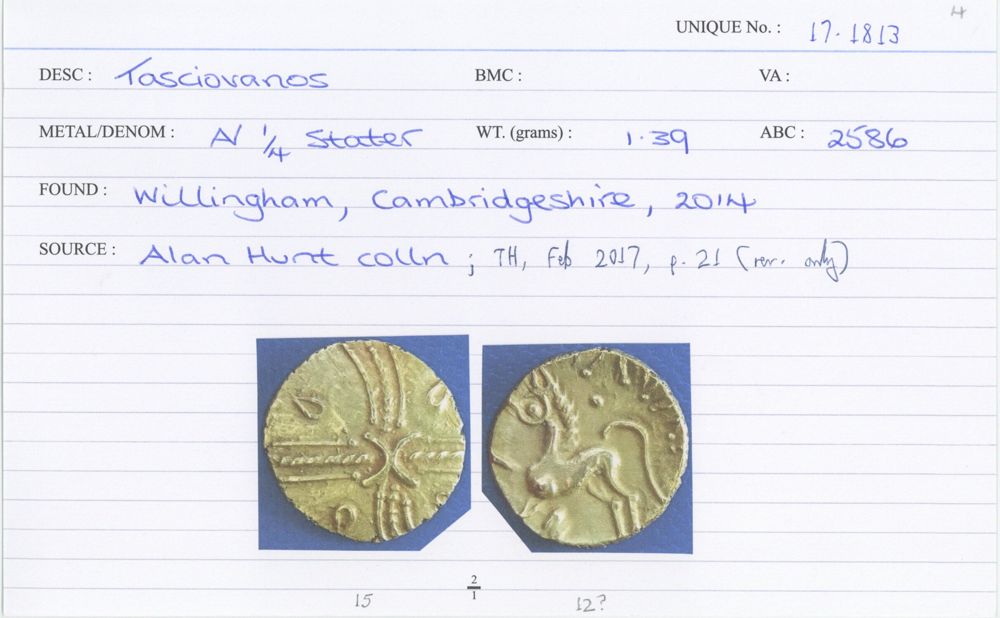 4
UNIQUE No. : 17.1813
DESC : Tasciovanos BMC : VA :
METAL/DENOM : A/ 1/4 Stater WT. (grams) : 1.39 ABC : 2586
FOUND : Willingham, Cambridgeshire, 2014
SOURCE : Alan Hunt colln ; TH, Feb 2017, p. 21 (rev. only)
2
1
15 12?